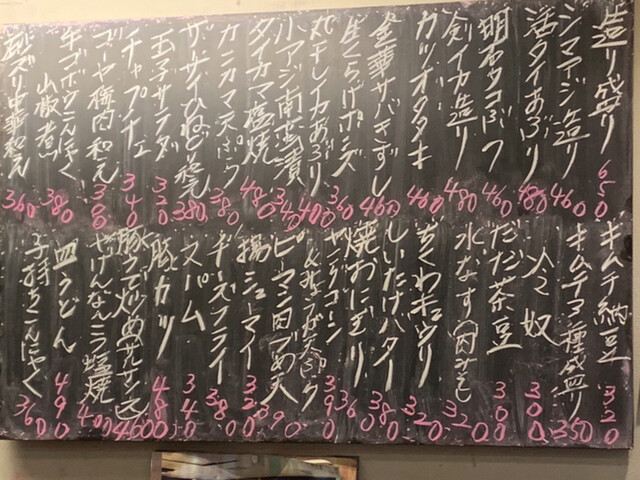 造り盛り 650
シマアジ造り 460
活タイあぶり 480
明石タコぶつ 460
剣イカ造り 480
カツオタタキ 460
金華サバきずし 460
生くらげポンズ 360
丸干しイカあぶり 400
小アジ南蛮漬 340
タイカマ塩焼 480
カニカマ天ぷら 380
ザーサイひねどり和え 380
玉子サラダ 320
チャプチェ 340
ゴーヤ梅肉和え 380
牛ゴボウこんにゃく山椒煮 380
砂ズリ中華和え 360
キムチ納豆 320
キムチ3種盛り 350
冷奴 300
だだ茶豆 300
水なす(肉みそ) 320
ちくわキュウリ 320
しいたけバター 380
焼おにぎり 360
ヤングコーン 390
ピーマン肉づめ天 390
揚シューマイ 320
チーズフライ 380
スパム 340
豚カツ 480
460
やげんなんこつ塩焼 400
皿うどん 490
子持ちこんにゃく 360